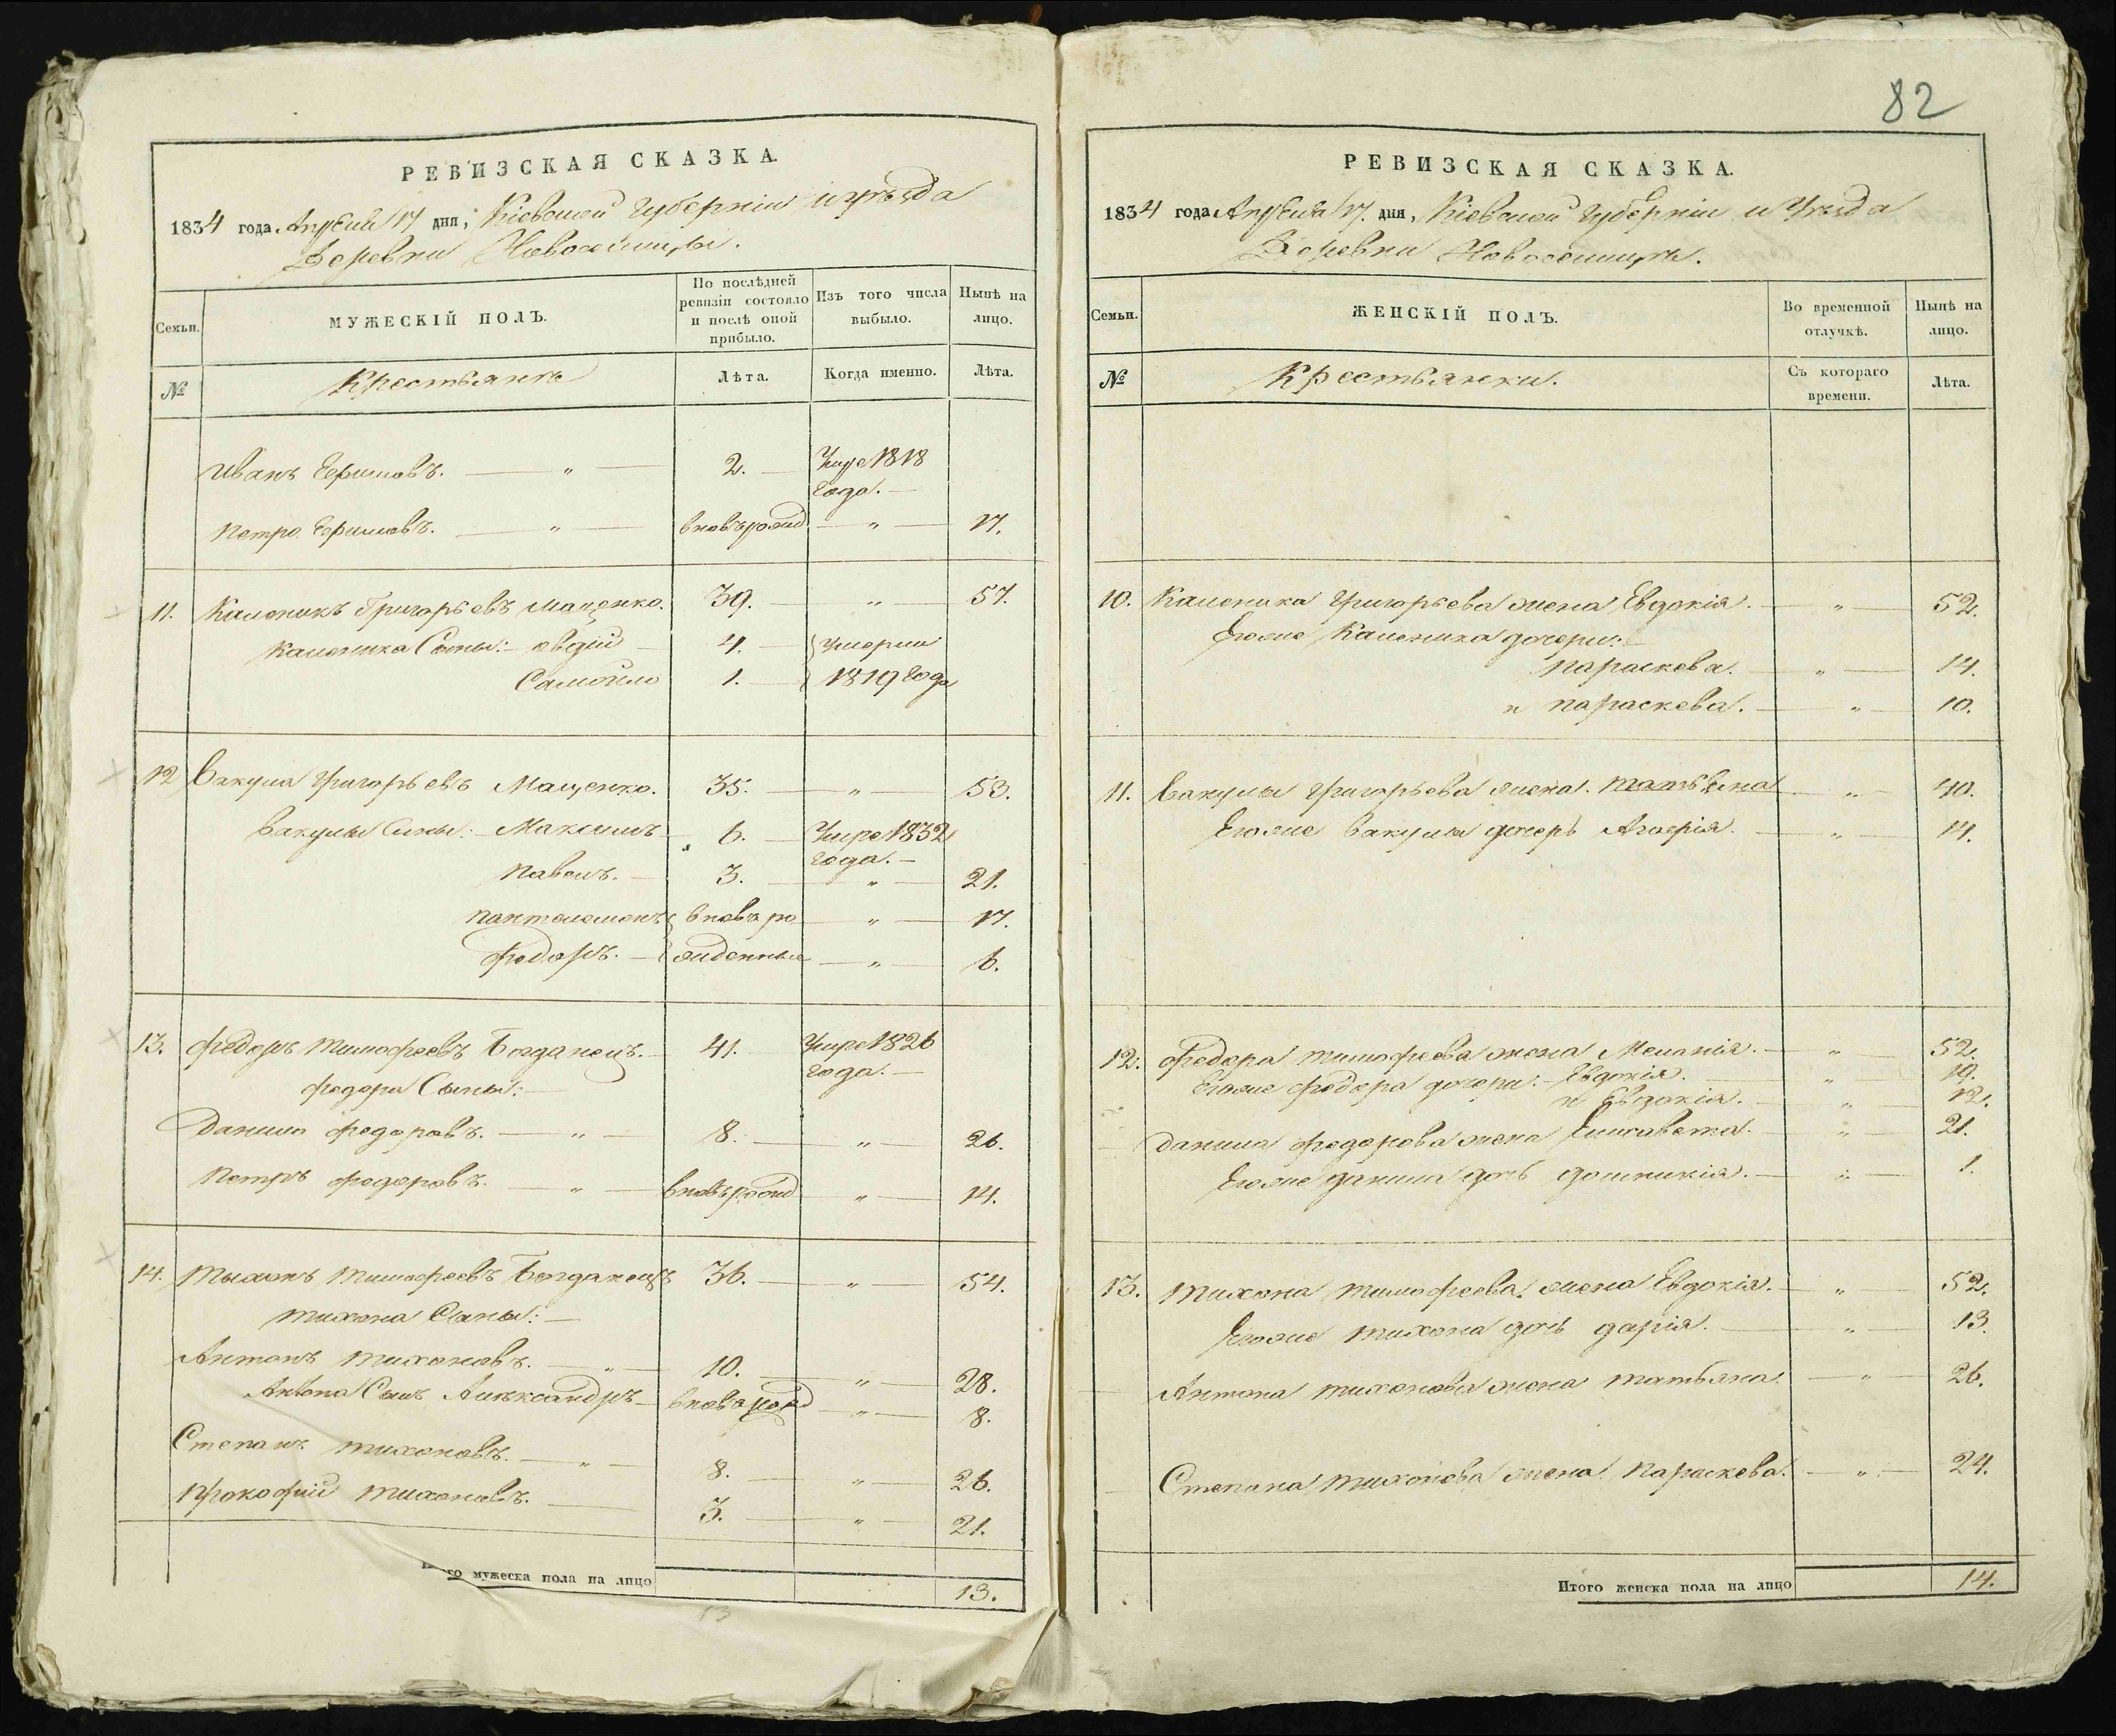 82
РЕВИЗСКАЯ СКАЗКА.
1834 года Апреля 17 дня, Кіевской Губерніи и уѣзда
Деревни Новоселицы.
Семьи.
МУЖЕСКІЙ ПОЛЪ.
По послѣдней ревизіи состояло и послѣ оной прибыло.
Изъ того числа выбыло.
Нынѣ на лицо.
№
Крестьянъ
Лѣта.
Когда именно.
Лѣта.
Иванъ Ефимовъ. — " — 2. — Умре 1818
года. —
Петро Ефимовъ. — " — вновь рожд — " — 17.
11. Каленикъ Григорьевъ Маценко. 39. — " — 57.
Каленика Сыны: Овдій — 4. — Умерли
Самойло 1. — 1819 года
12 Вакула Григорьевъ Маценко. 35. — " — 53.
Вакулы Сыны: Максимъ 6. — Умре 1832
года. —
Павелъ. — 3. — " — 21.
Пантелемонъ вновь ро — " — 17.
Федоръ. — жденные — " — 6.
13. Федоръ Тимофеевъ Богданецъ. 41. Умре 1826
года. —
Федора Сыны: —
Данило Федоровъ. — " — 8. — " — 26.
Петръ Федоровъ. — " — вновь рожд — " — 14.
14. Тихонъ Тимофеевъ Богданецъ 36. — " — 54.
Тихона Сыны: —
Антонъ Тихоновъ. — " — 10. — " — 28.
Антона Сынъ Александръ — вновь рожд — " — 8.
Степанъ Тихоновъ. — " — 8. — " — 26.
Прокофій Тихоновъ. — 3. — " — 21.
го мужеска пола на лицо 13.
13
РЕВИЗСКАЯ СКАЗКА.
1834 года Апреля 17. дня, Кіевской Губерніи и Уѣзда
Деревни Новоселицы.
Семьи.
ЖЕНСКІЙ ПОЛЪ.
Во временной отлучкѣ.
Нынѣ на лицо.
№
Крестьянки.
Съ котораго времени.
Лѣта.
10. Каленика Григорьева жена Евдокія. — " — 52.
Егоже Каленика дочери:
Параскева. — " — 14.
и Параскева. — " — 10.
11. Вакулы Григорьева жена. Татьяна — " — 40.
Егоже Вакулы дочерь Агафія. — " — 14.
12. Федора Тимофеева жена Меланія. — " — 52.
Егоже Федора дочери: Евдокія. — " — 19.
и Евдокія. — " — 12.
Данила Федорова жена Елисавета. — " — 21.
Егоже Данила дочь Домникія. — " — 1.
13. Тихона Тимофеева. жена Евдокія. — " — 52.
Егоже Тихона дочь Дарія. — " — 13.
Антона Тихонова жена Татьяна. — " — 26.
Степана Тихонова жена Параскева. — " — 24.
Итого женска пола на лицо 14.